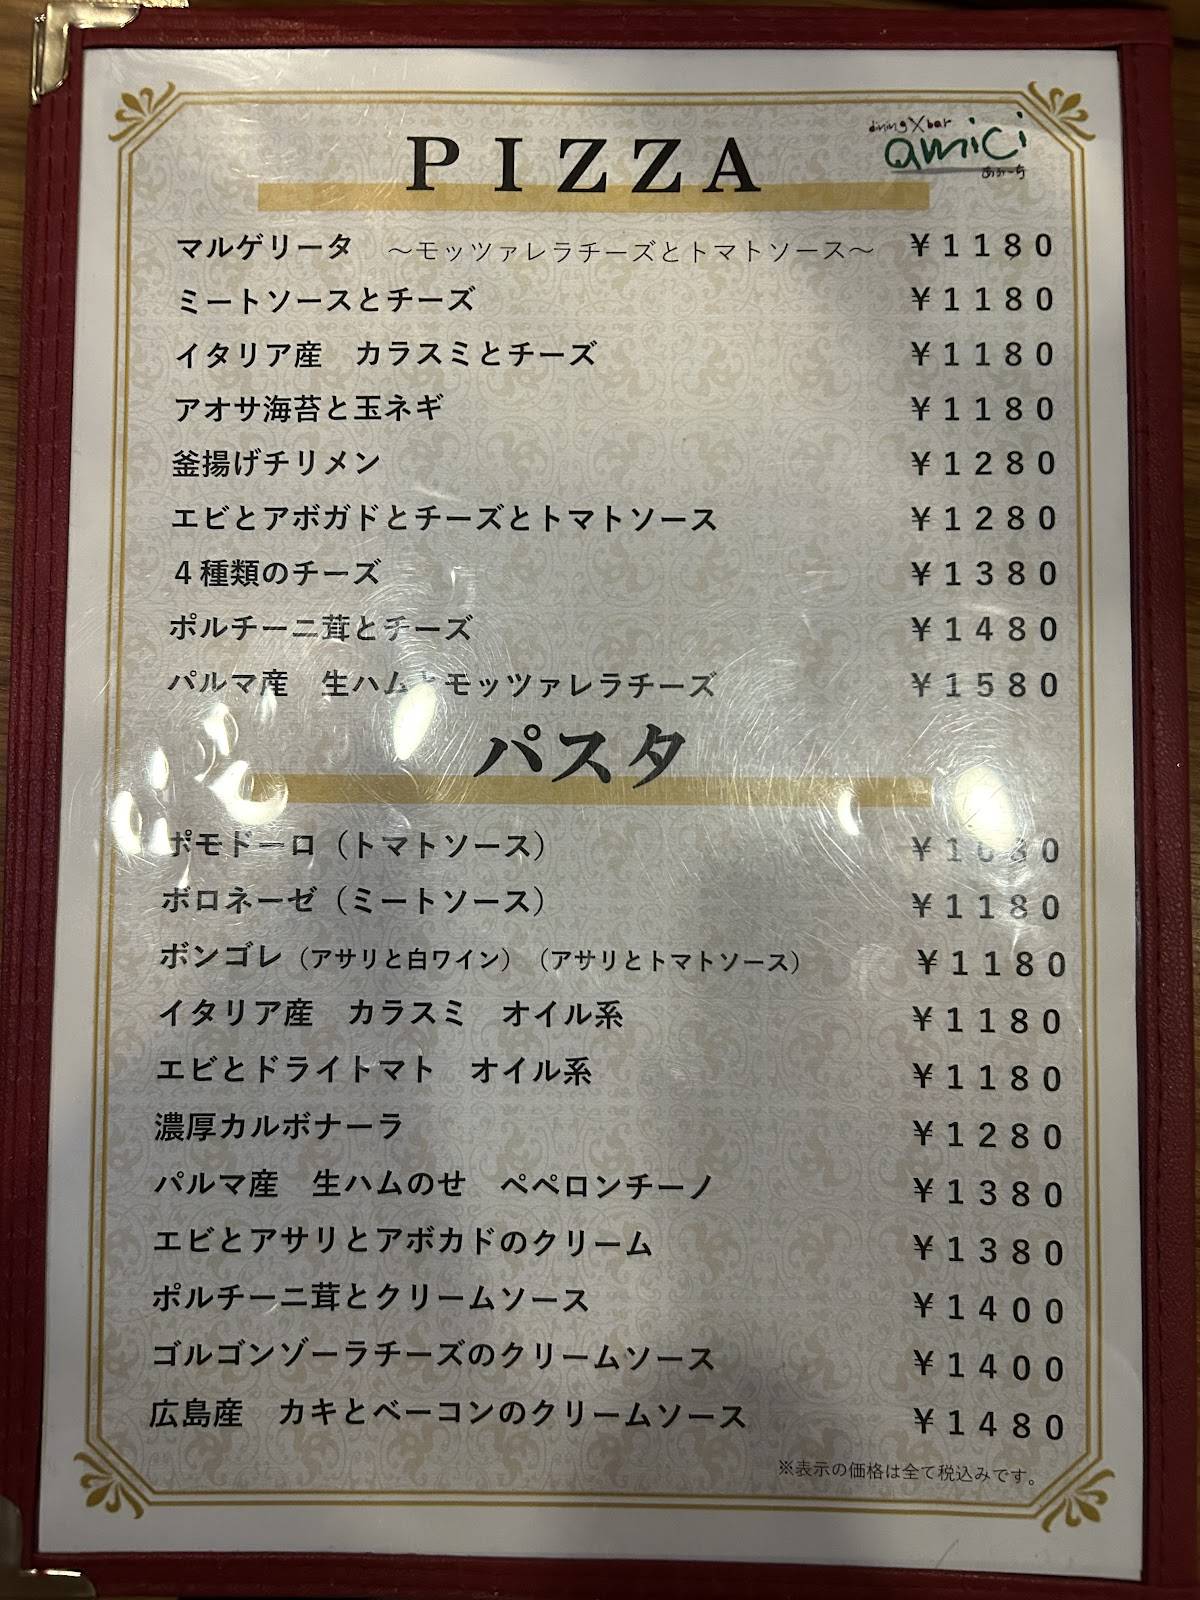 PIZZA
dining×bar
amici
あみーち
マルゲリータ ～モッツァレラチーズとトマトソース～ ￥1180
ミートソースとチーズ ￥1180
イタリア産 カラスミとチーズ ￥1180
アオサ海苔と玉ネギ ￥1180
釜揚げチリメン ￥1280
エビとアボガドとチーズとトマトソース ￥1280
4種類のチーズ ￥1380
ポルチーニ茸とチーズ ￥1480
パルマ産 生ハムとモッツァレラチーズ ￥1580
パスタ
ポモドーロ（トマトソース）
ボロネーゼ（ミートソース） ￥1180
ボンゴレ（アサリと白ワイン）（アサリとトマトソース） ￥1180
イタリア産 カラスミ オイル系 ￥1180
エビとドライトマト オイル系 ￥1180
濃厚カルボナーラ ￥1280
パルマ産 生ハムのせ ペペロンチーノ ￥1380
エビとアサリとアボカドのクリーム ￥1380
ポルチーニ茸とクリームソース ￥1400
ゴルゴンゾーラチーズのクリームソース ￥1400
広島産 カキとベーコンのクリームソース ￥1480
※表示の価格は全て税込みです。